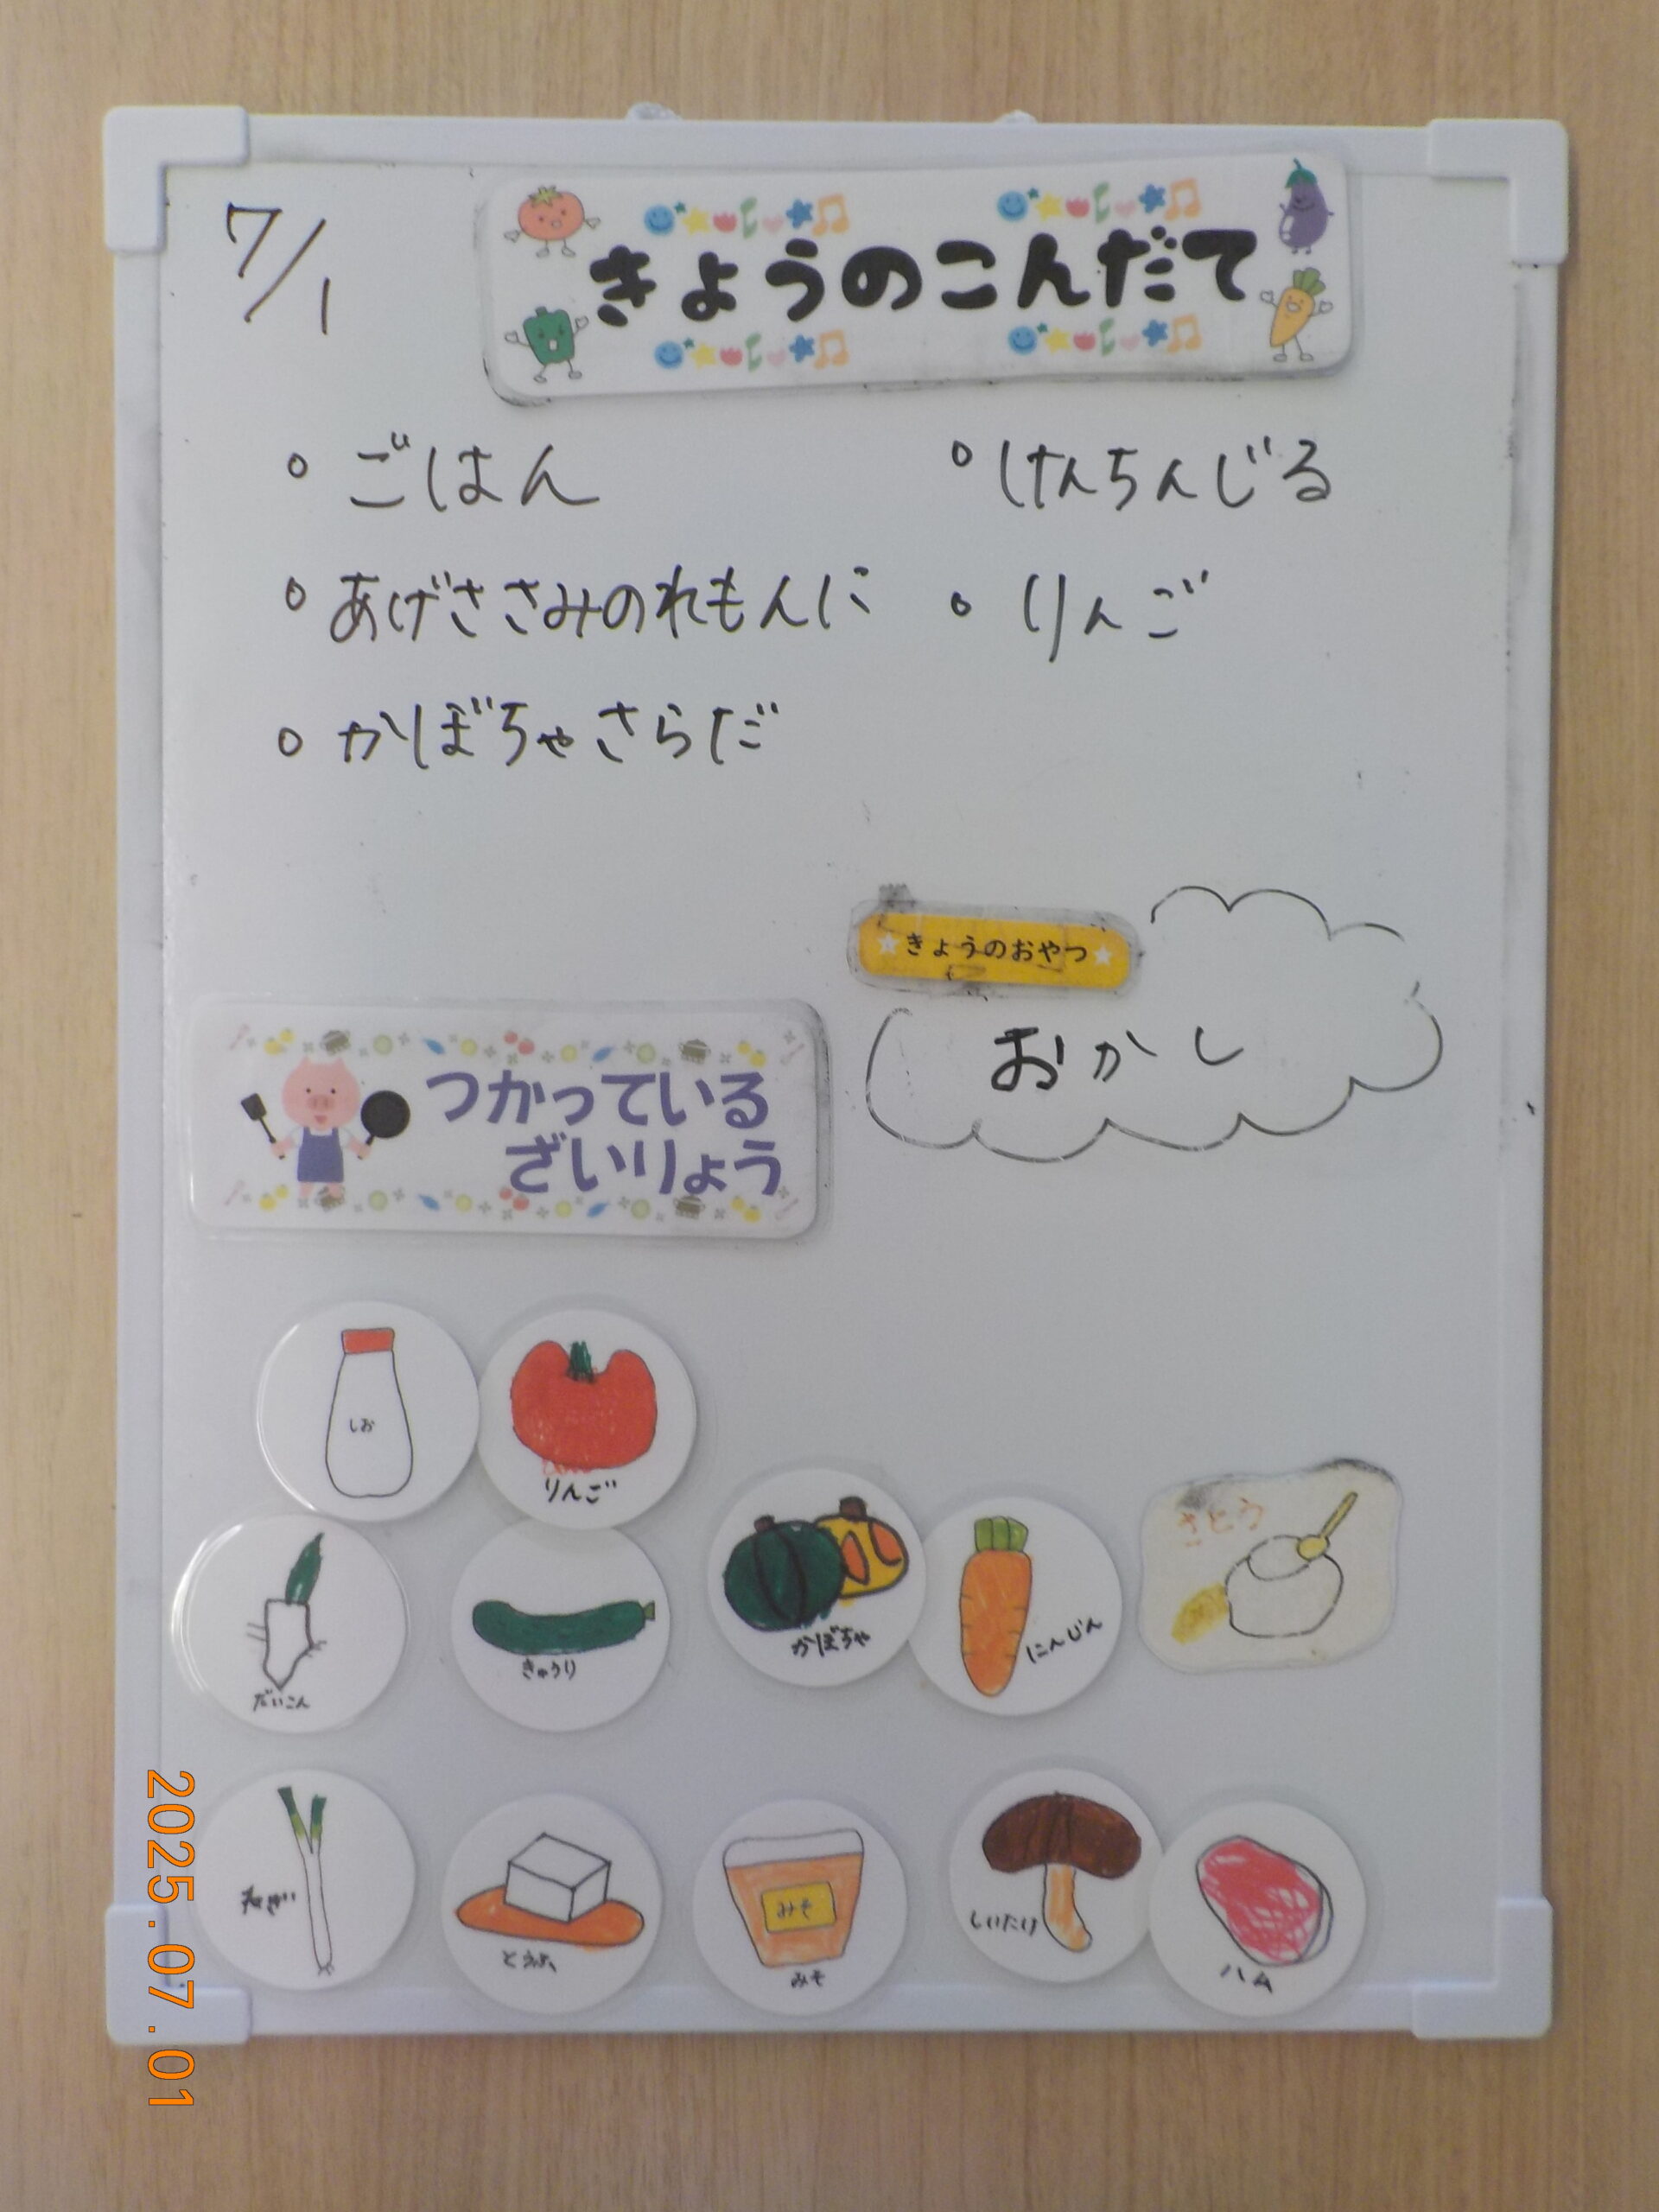 7/1
きょうのこんだて
○ ごはん
○ あげささみのれもんに
○ かぼちゃさらだ
○ けんちんじる
○ りんご
★きょうのおやつ★
おかし
つかっている
ざいりょう
しお
りんご
だいこん
きゅうり
かぼちゃ
にんじん
さとう
ねぎ
とうふ
みそ
みそ
しいたけ
ハム
2025.07.01